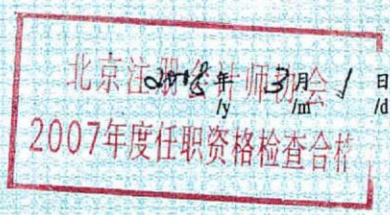 北京注册会计师协会
2008年3月1日
/y /m /d
2007年度任职资格检查合格